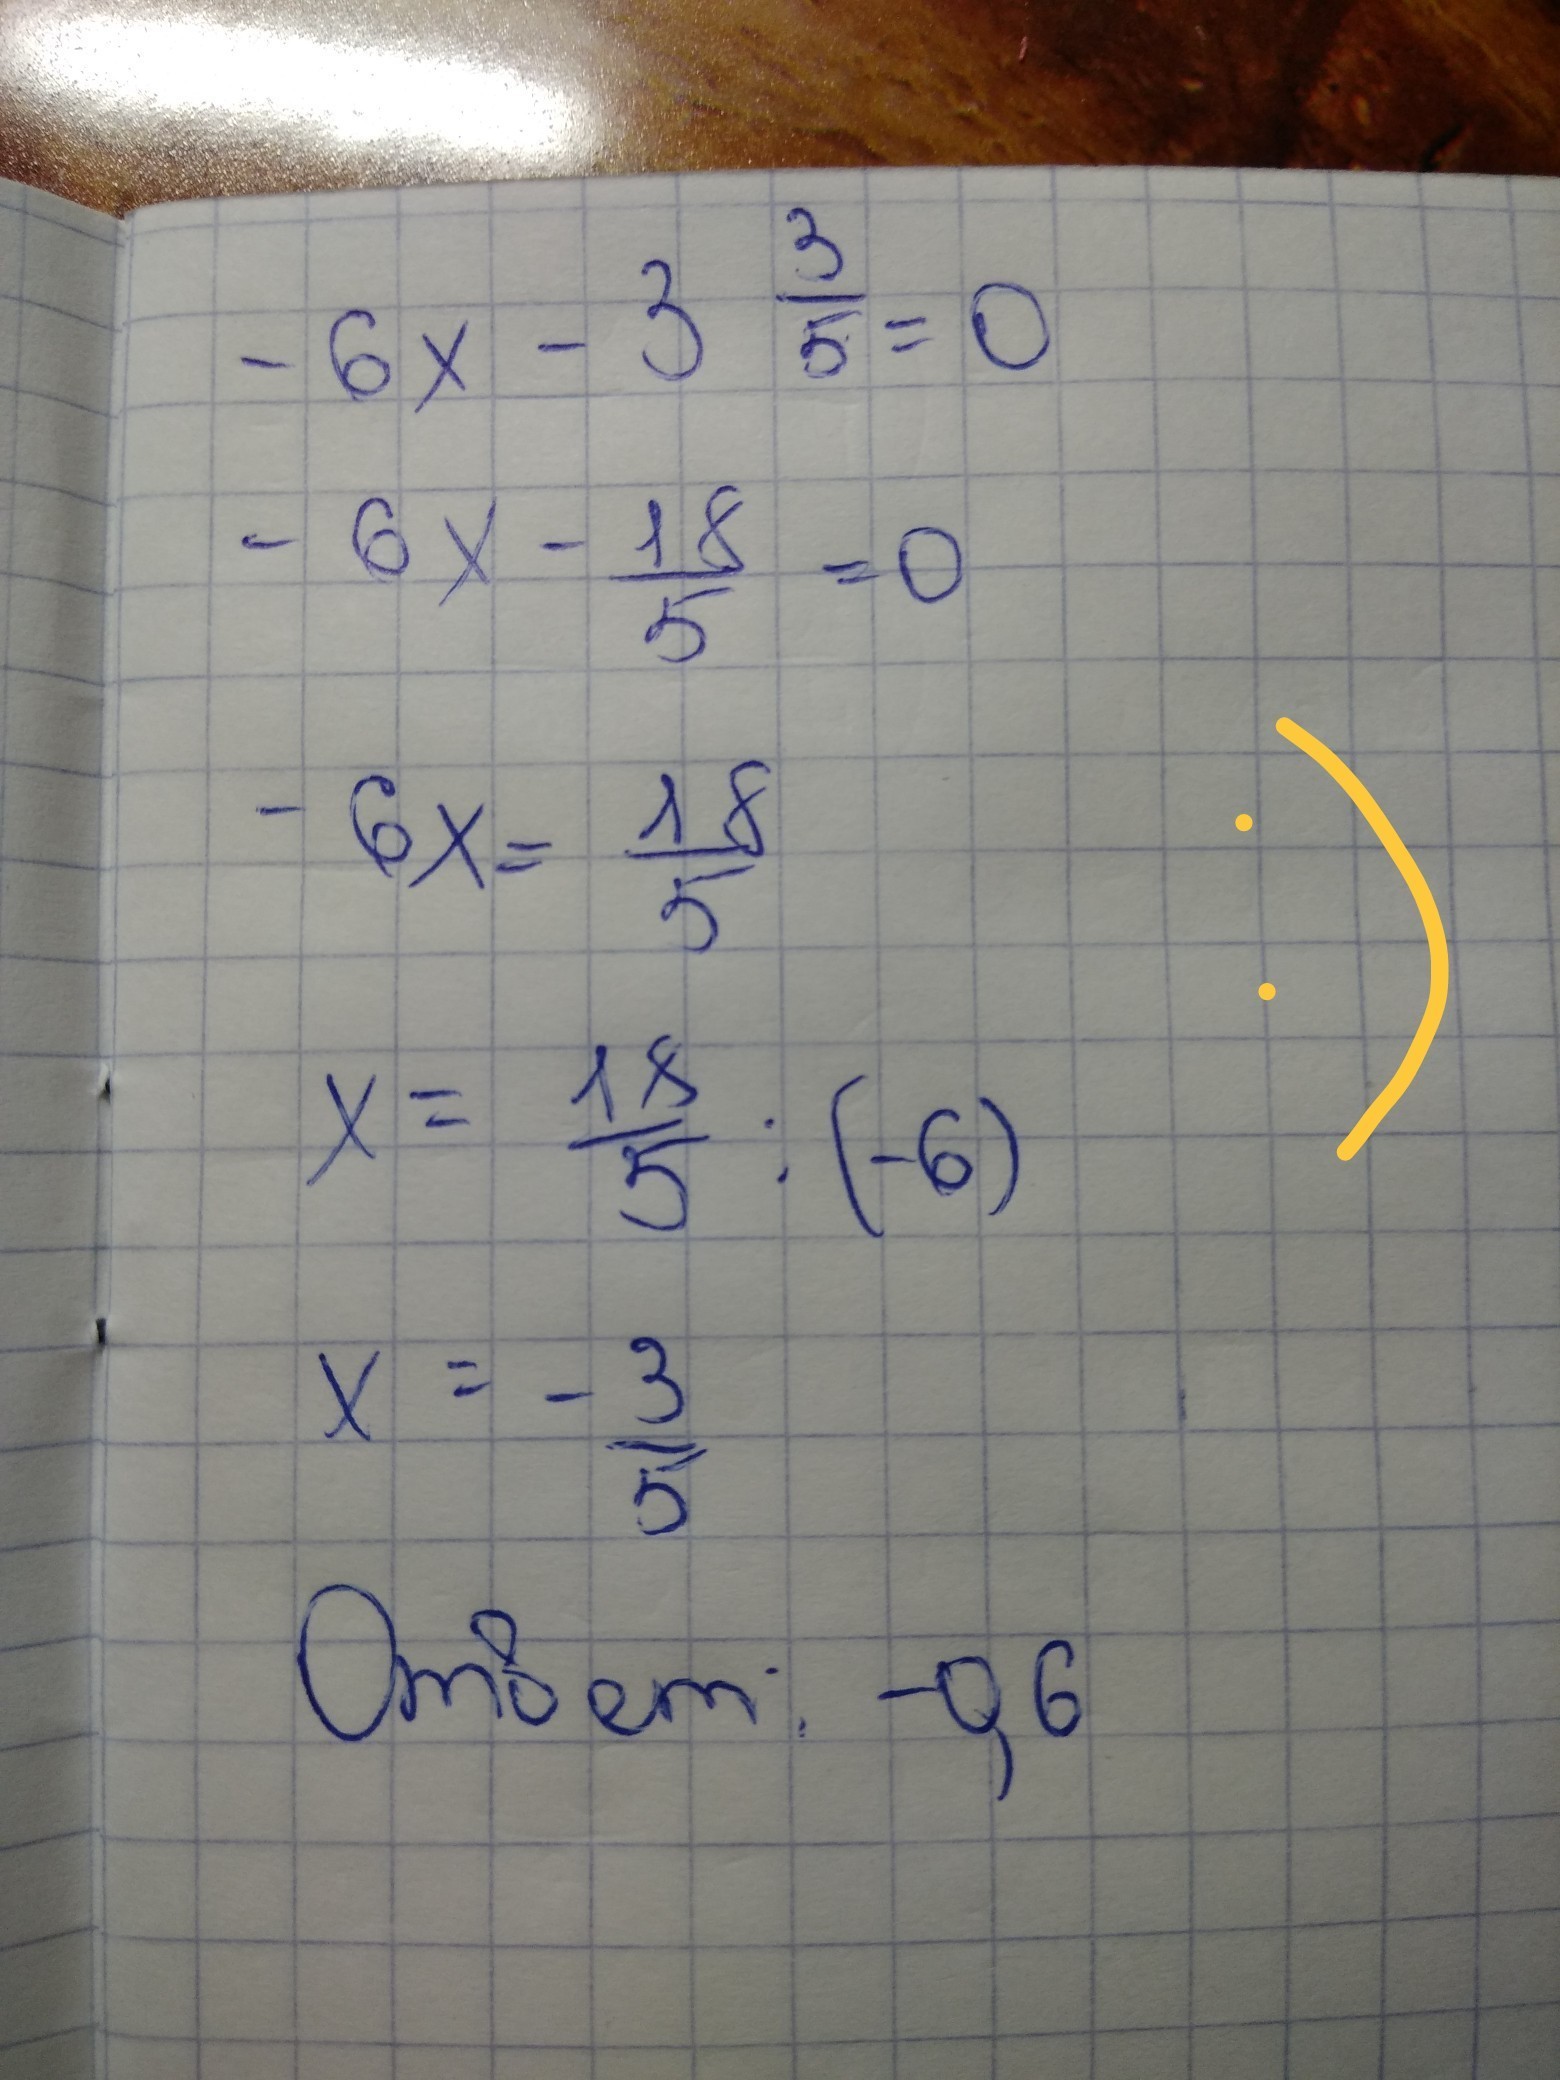 -6x - 3 3/5 = 0
-6x - 18/5 = 0
-6x = 18/5
x = 18/5 : (-6)
x = -3/5
Ответ: -0,6